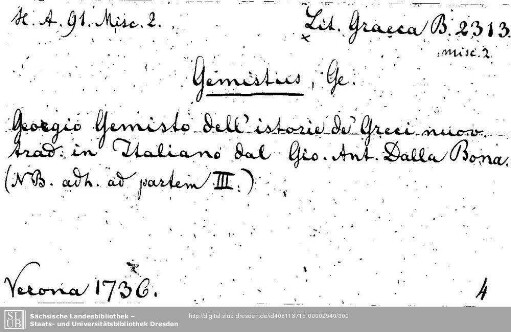 H. A. 91. Misc. 2.
Lit. Graeca B. 2313.
misc. 2
Gemistus, Ge.
Georgio Gemisto dell'istorie de' Greci nuov.
trad: in Italiano dal Gio. Ant. Dalla Bona.
(NB. adh. ad partem III.)
Verona 1736.
4
SLUB
Sächsische Landesbibliothek –
Staats- und Universitätsbibliothek Dresden